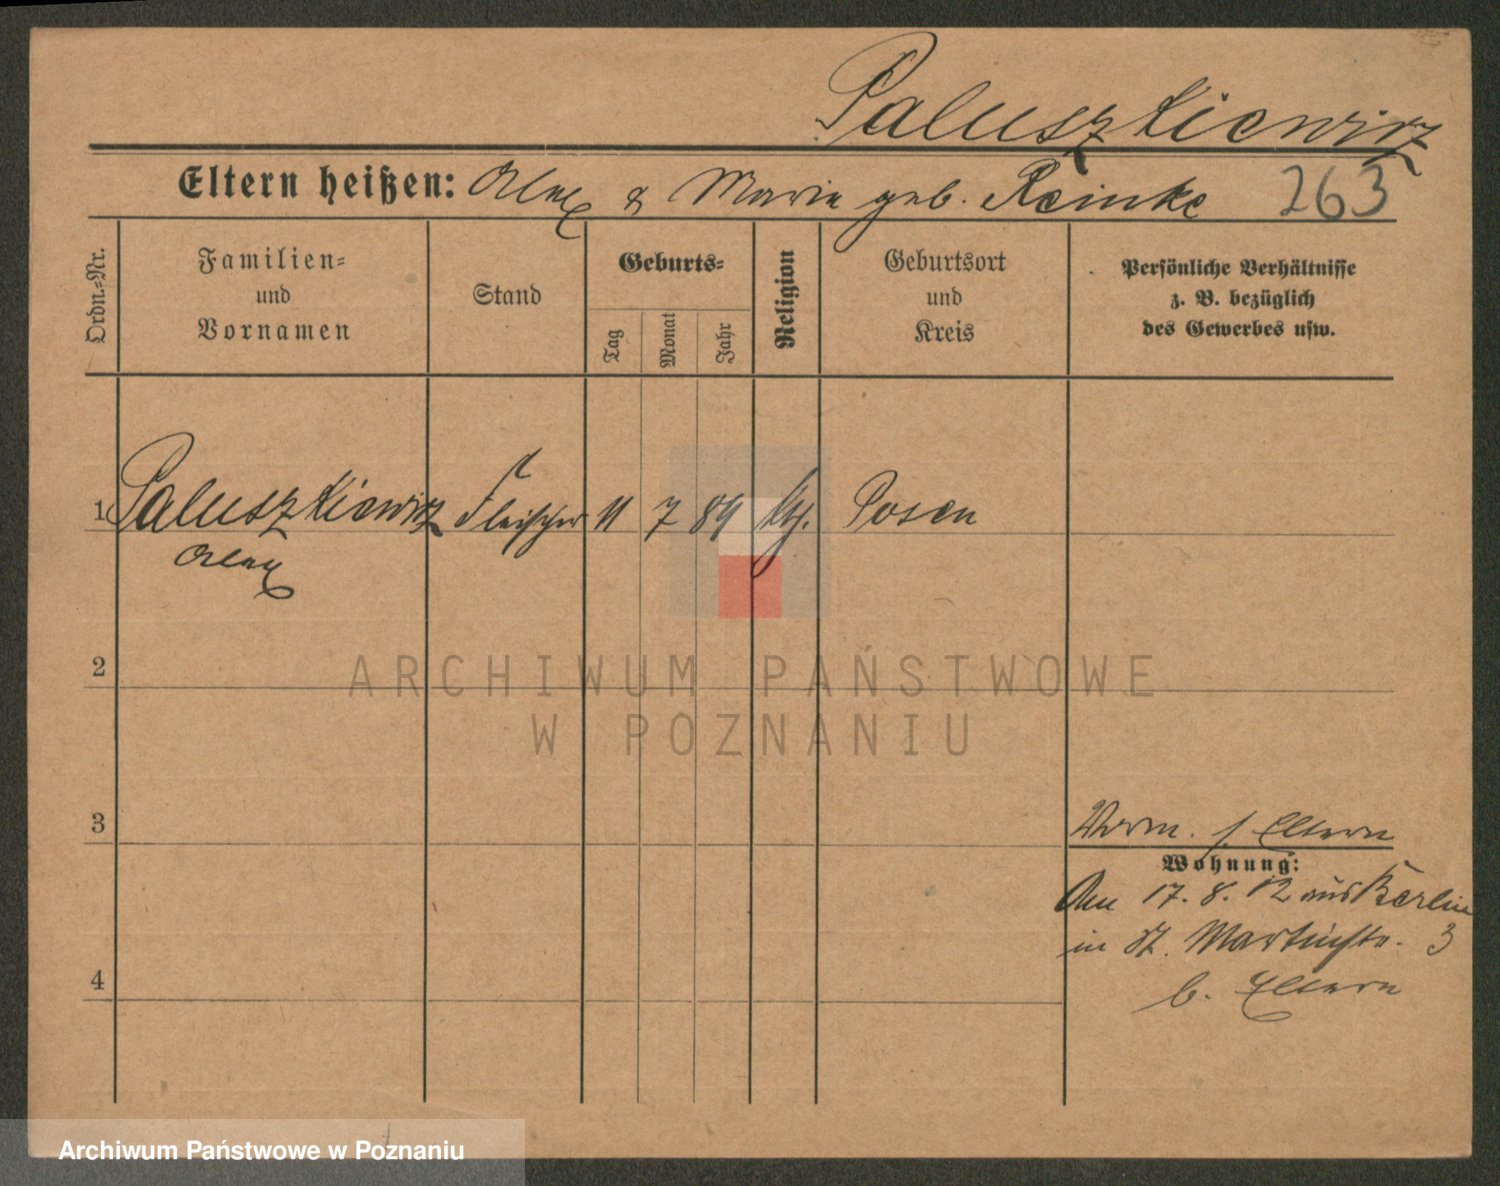 Paluszkiewicz
Eltern heißen: Alex & Marie geb. Reinke 263
Ordn.=Nr.
Familien=
und
Vornamen
Stand
Geburts=
Tag
Monat
Jahr
Religion
Geburtsort
und
Kreis
Persönliche Verhältnisse
z. B. bezüglich
des Gewerbes usw.
1 Paluszkiewicz Fleischer 11 7 89 Posen
Alex
2
ARCHIWUM PAŃSTWOWE
W POZNANIU
3
Verm. s. Eltern
Wohnung:
Am 17. 8. 12 aus Berlin
in St. Martinstr. 3
b. Eltern
4
Archiwum Państwowe w Poznaniu